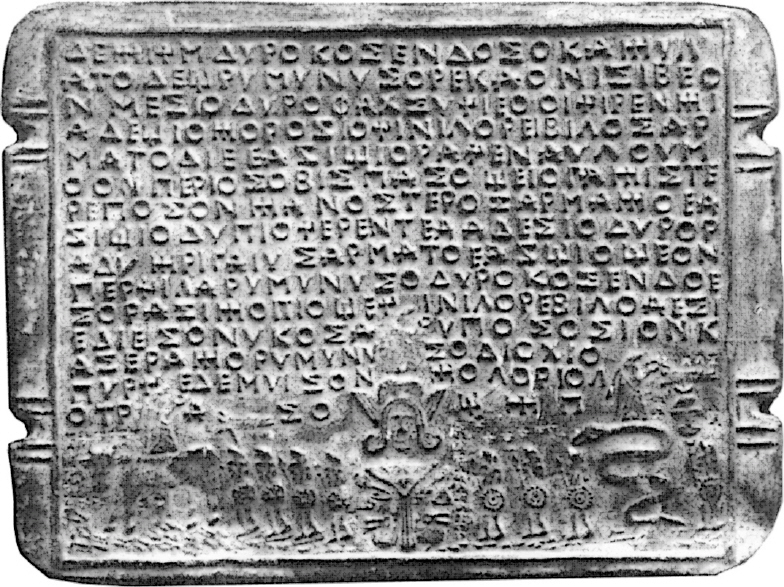 ΔΕΨΙΨΜ ΔΥΡΟ ΚΟΣΕΝΔΟΣΟΚΑΨΥΛ
ΑΤΟΔΕΩΡΥΜΥΝΥΣΟΡΕΚΑΟΝΙΣΙΒΕΟ
ΝΜΕΣΙΟΔΥΡΟΦΑΚΣΥΨΙΕΟΟΙΨΙΡΕΝΨΙ
ΑΔΕΨΙΟΨΟΡΟΣΙΟΨΙΝΙΛΟΡΕΙΒΙΛΟΣΑΡ
ΜΑΤΟΔΙΕΕΑΣΙΨΙΟΡΑΨΕΝΑΥΛΟΥΜ
ΟΟΝΠΕΡΙΟΣΟΒΙΣΠΑΣΟΨΕΙΟΡΑΨΙΣΤΕ
ΡΕΠΟΣΟΝΨΑΝΟΣΤΕΡΟΣΑΡΜΑΨΟΕΑ
ΣΙΨΙΟΔΥΠΙΟΨΕΡΕΝΤΕΨΑΔΕΣΙΟΔΥΡΟΡ
ΨΡΙΓΑΙΥ ΣΑΡΜΑΤΟΕΑΣΨΙΟΨΕΟΝ
ΠΕΡΨΙΔΑΡΥΜΥΝΥΣΟΔΥΡΟ ΚΟΣΕΝΔΟΕ
ΣΟΡΑΣΙΨΟΠΙΟΨΕΨ ΙΝΙΛΟΡΕΒΙΛΟΨΕΣΙ
ΕΔΙΕΣΟΝΥΚΟΣΑ ΡΥΠΟΣΟΣΙΟΝΙΚ
ΑΣΕΡΑΨΟΡΥΜΥΝΥ ΣΟΔΙΟΧΙΟ
ΠΥΡΨΕΔΕΜΥΙΣΟΝ ΨΟΛΟΡΙΟΛ
ΟΤΡΙ Α ΣΟ Ψ Ψ Π